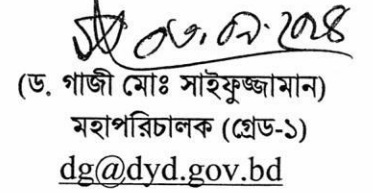 (ড. গাজী মোঃ সাইফুজ্জামান)
মহাপরিচালক (গ্রেড-১)
dg@dyd.gov.bd